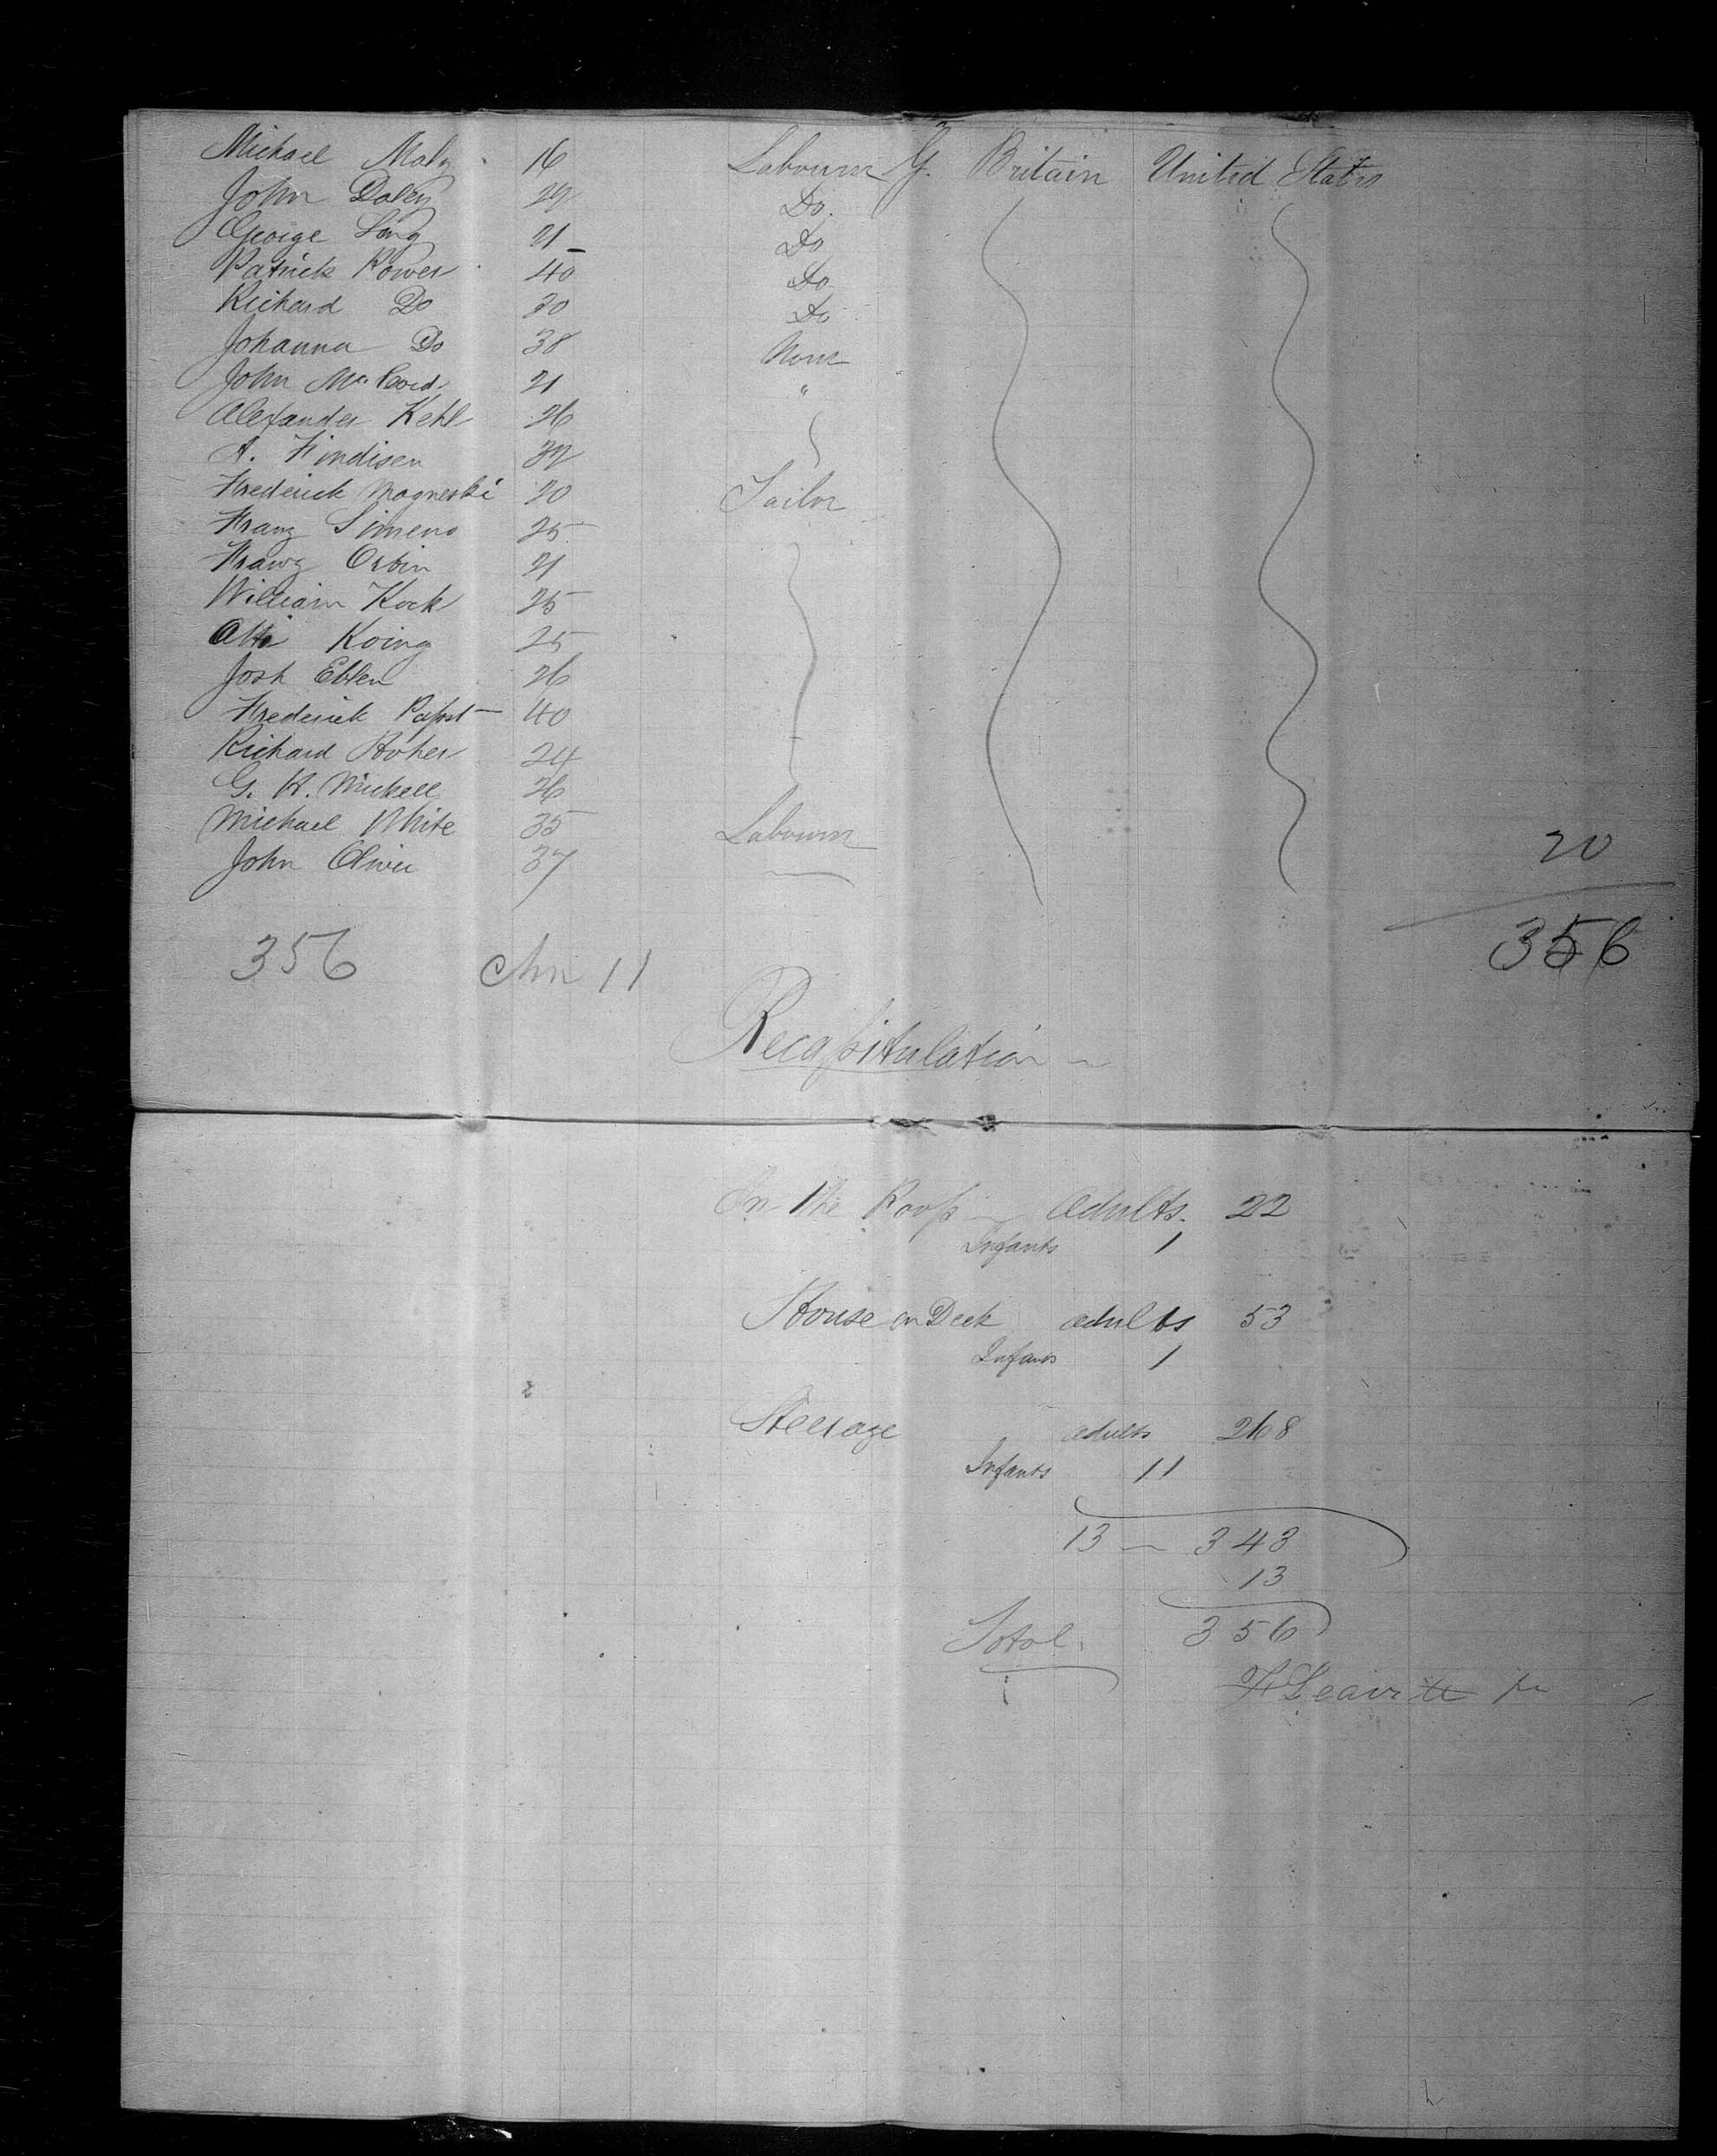 Michael Maly 16 Labourer Gt. Britain United States
John Daley 22 Do.
George Long 21 Do
Patrick Power 40 Do
Richard Do 20 Do
Johanna Do 38 None
John McCord 21 "
Alexander Kehl 26
A. Findisen 32
Frederick Magneski 20 Tailor
Franz Simeno 25
Franz Orbin 21
William Kock 25
Otto Koing 25
Josh Eblen 26
Frederick Papst 40
Richard Hoher 24
G. H. Mickell 26
Michael White 35 Labourer
John Oliver 37
20
356 Chn 11 356
Recapitulation
In the Poop Adults. 22
Infants 1
House on Deck adults 53
Infants 1
Steerage adults 268
Infants 11
13 — 343
13
Total. 356
Leavitt